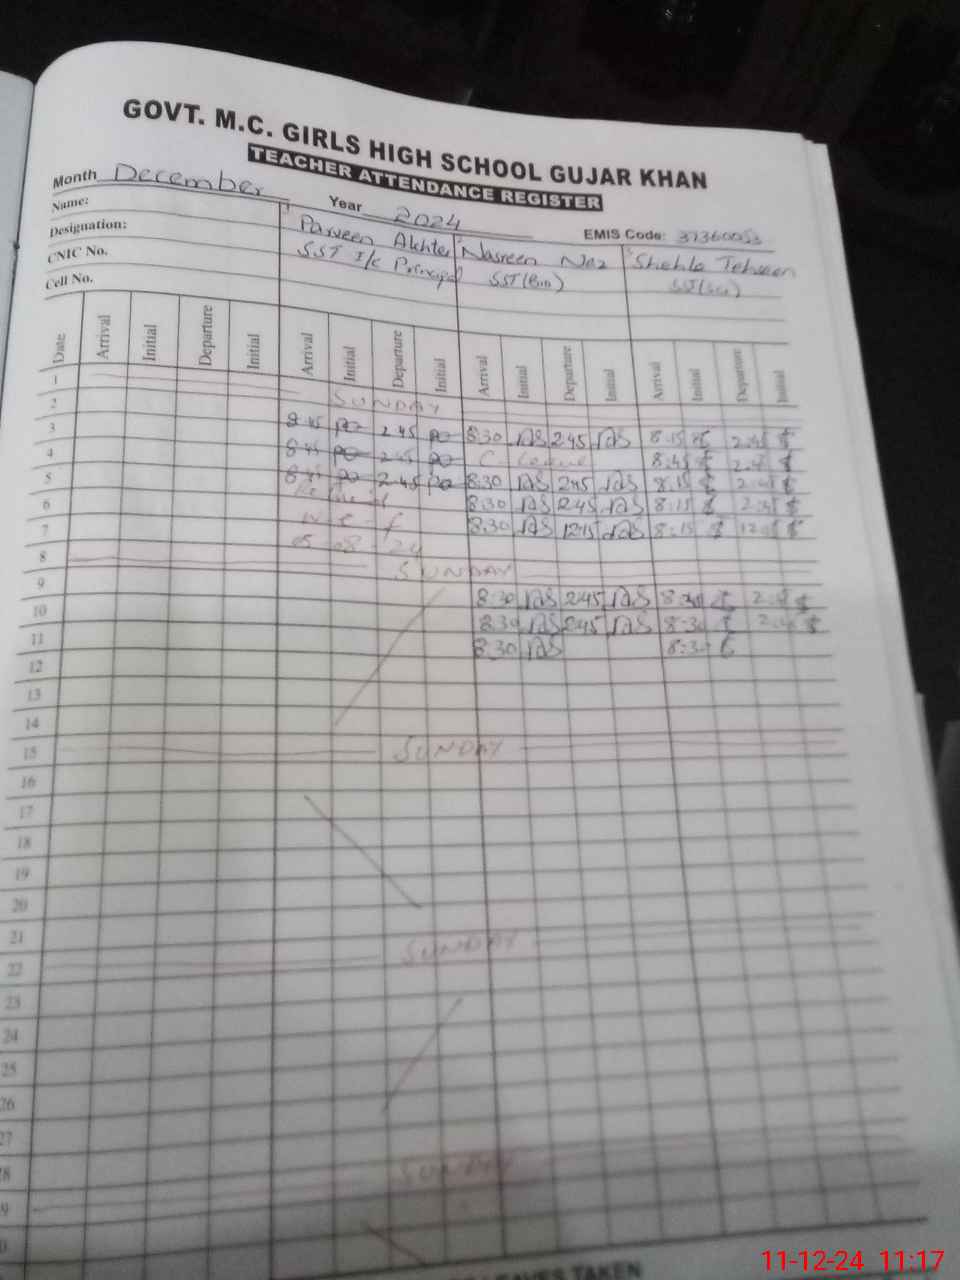 GOVT. M.C. GIRLS HIGH SCHOOL GUJAR KHAN
TEACHER ATTENDANCE REGISTER
Month December Year 2024 EMIS Code: 37360053
Name: Parveen Akhter Nasreen Naz Shehla Tehseen
Designation: SST I/c Principal SST(Bio) SST(Sci)
CNIC No.
Cell No.
Date Arrival Initial Departure Initial Arrival Initial Departure Initial Arrival Initial Departure Initial Arrival Initial Departure Initial
1 SUNDAY
2 8:45 2:45 8:30 2:45 8:15 2:45
3 8:45 2:45 C. Leave 8:45 2:45
4 8:45 2:45 8:30 2:45 8:15 2:45
5 8:30 2:45 8:15 2:45
6 w e f 8:30 12:15 8:15
7
8 SUNDAY
9 8:30 2:45 8:30
10 8:30 2:45 8:30
11 8:30 8:30
12
13
14
15 SUNDAY
16
17
18
19
20
21
22 SUNDAY
23
24
25
26
27
28
29 SUNDAY
LEAVES TAKEN
11-12-24 11:17